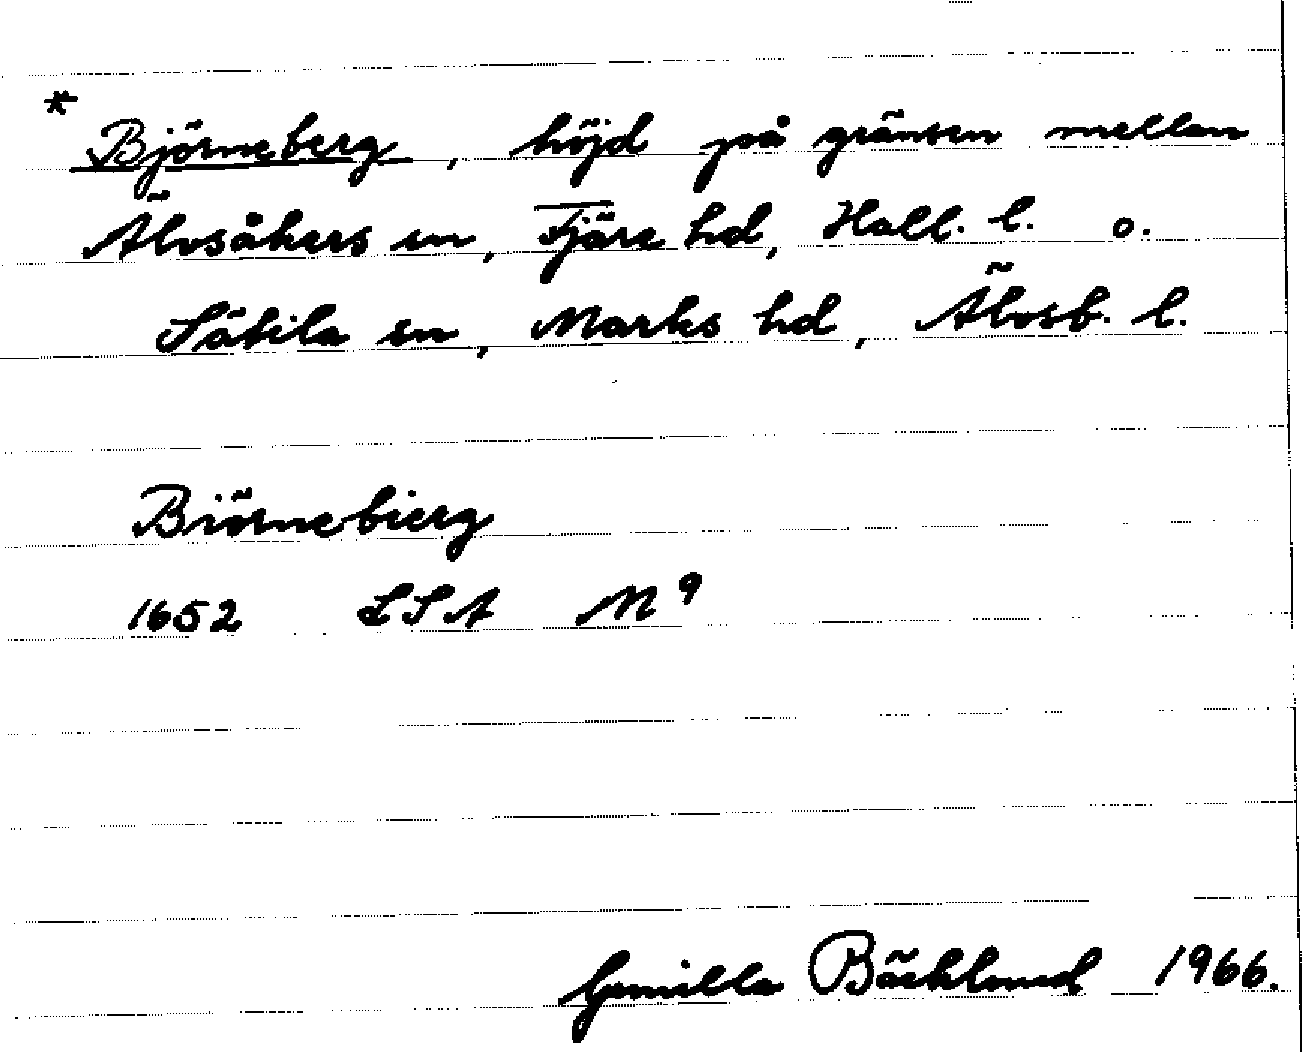 * Björneberg, höjd på gränsen mellan
Älvsåkers sn, Fjäre hd, Hall. l. o.
Sätila sn, Marks hd, Älvsb. l.
Biörnebierg
1652 LSA M 9
Gunilla Bäcklund 1966.